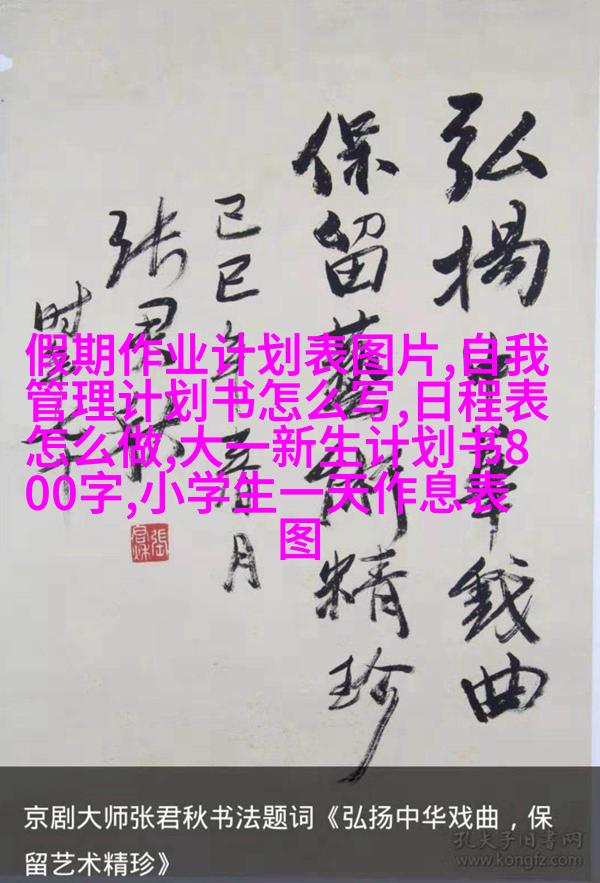 弘揚中華戲曲
保留藝術精珍
己巳年五月
张君秋
假期作业计划表图片,自我
管理计划书怎么写,日程表
怎么做,大一新生计划书8
00字,小学生一天作息表
图
京剧大师张君秋书法题词《弘扬中华戏曲，保
留艺术精珍》
孔夫子旧书网
www.kongfz.com